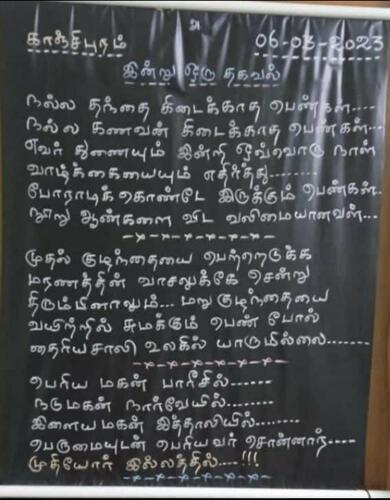 அ
காஞ்சிபுரம் 06-03-2023
இன்று ஒரு தகவல்
நல்ல தந்தை கிடைக்காத பெண்கள்....
நல்ல கணவன் கிடைக்காத பெண்கள்...
எவர் துணையும் இன்றி ஒவ்வொரு நாள்
வாழ்க்கையையும் எதிர்த்து........
போராடிக்கொண்டே இருக்கும் பெண்கள்..
நூறு ஆண்களை விட வலிமையானவள்...
முதல் குழந்தையை பெற்றெடுக்க
மரணத்தின் வாசலுக்கே சென்று
திரும்பினாலும்... மறு குழந்தையை
வயிற்றில் சுமக்கும் பெண் போல்
தைரியசாலி உலகில் யாருமில்லை........
பெரிய மகன் பாரீசில்.......
நடுமகன் நார்வேயில்........
இளைய மகன் இத்தாலியில்........
பெருமையுடன் பெரியவர் சொன்னார்....
முதியோர் இல்லத்தில்....!!!